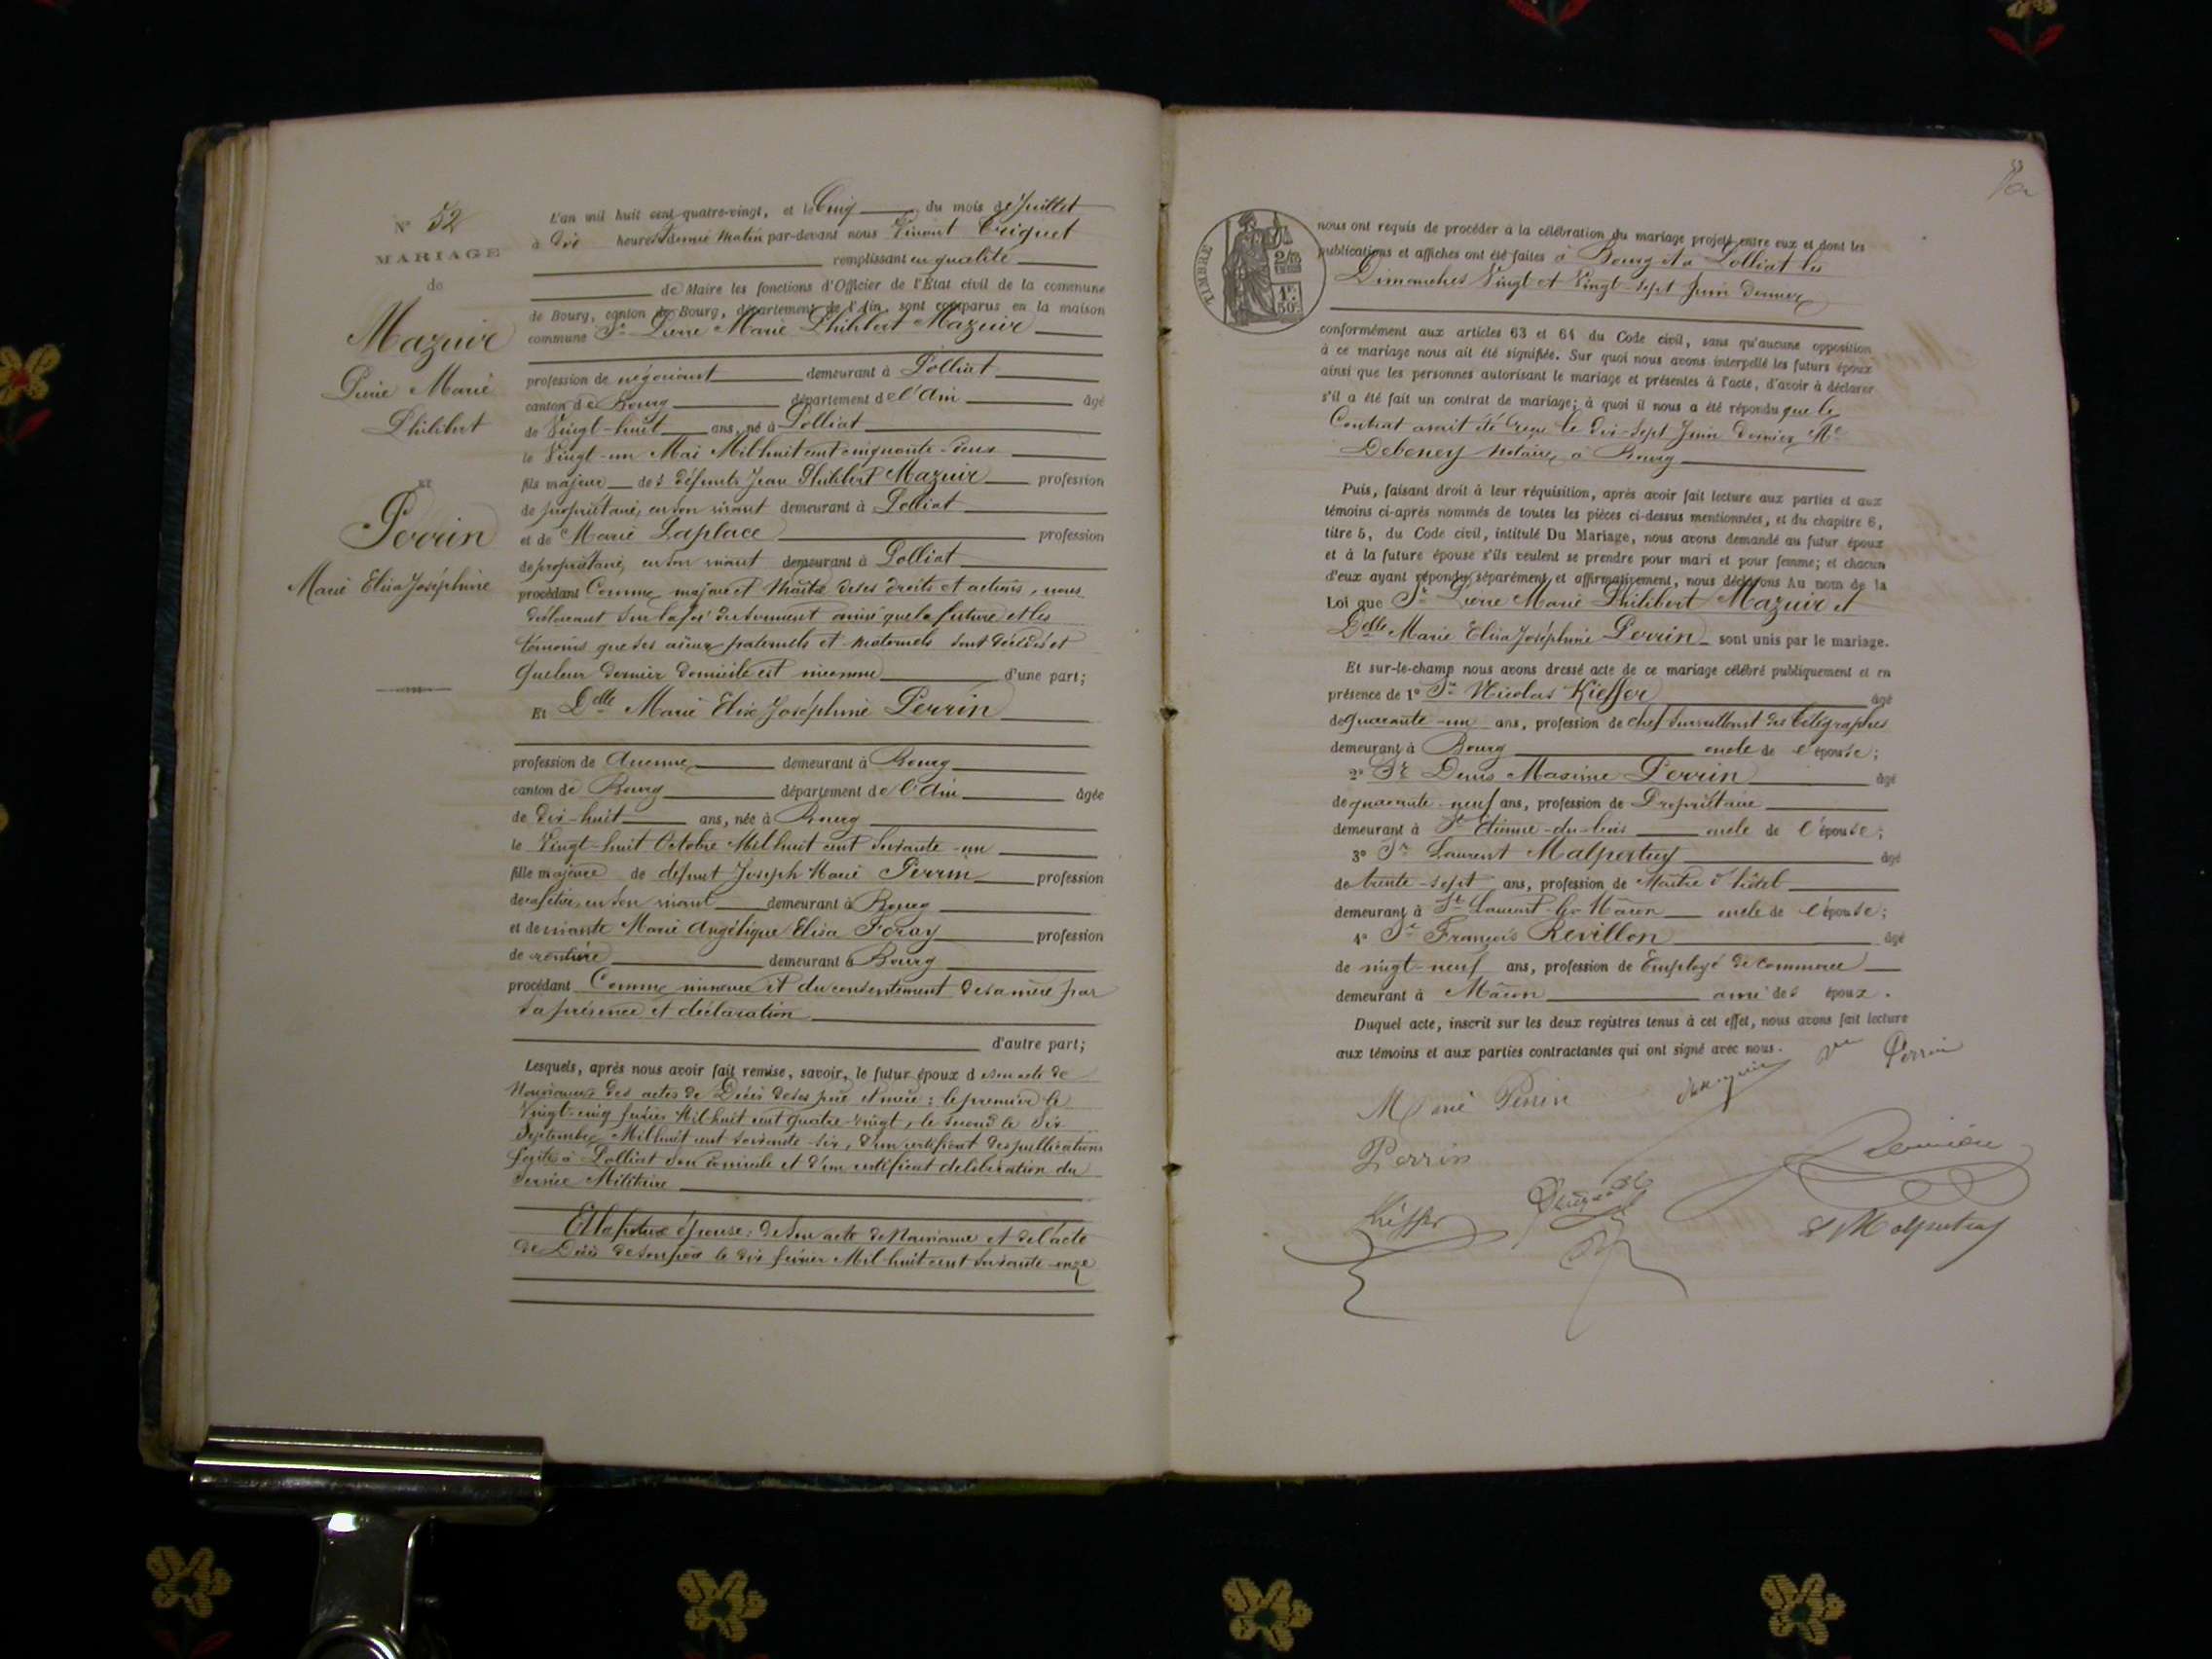 N° 52
MARIAGE
de
Mazuir
Pierre Marie
Philibert
ET
Perrin
Marie Elisa Joséphine
L'an mil huit cent quatre-vingt, et le Cinq du mois de Juillet
à dix heures et demie Matin par-devant nous Vincent
remplissant en qualité
de Maire les fonctions d'Officier de l'État civil de la commune
de Bourg, canton de Bourg, département de l'Ain, sont comparus en la maison
commune Sr Pierre Marie Philibert Mazuir
profession de négociant demeurant à Polliat
canton de Bourg département de l'Ain âgé
de Vingt-huit ans, né à Polliat
le Vingt-un Mai Mil huit cent cinquante-deux
fils majeur des défunts Jean Philibert Mazuir profession
de propriétaire, en son vivant demeurant à Polliat
et de Marie Laplace profession
de propriétaire, en son vivant demeurant à Polliat
procédant Comme majeur et Maître de ses droits et actions, nous
déclarant sur la foi du serment ainsi que la future et les
témoins que ses aïeux paternels et maternels sont décédés et
que leur dernier domicile est inconnu d'une part;
Et Delle Marie Elisa Joséphine Perrin
profession de Aucune demeurant à Bourg
canton de Bourg département de l'Ain âgée
de dix-huit ans, née à Bourg
le Vingt-huit Octobre Mil huit cent soixante-un
fille majeure de défunt Joseph Marie Perrin profession
de cafetier, en son vivant demeurant à Bourg
et de vivante Marie Angélique Elisa Foray profession
de rentière demeurant à Bourg
procédant Comme mineure et du consentement de sa mère par
sa présence et déclaration
d'autre part;
Lesquels, après nous avoir fait remise, savoir, le futur époux de son acte de
Naissance des actes de Décès de ses père et mère: le premier le
Vingt-cinq février Mil huit cent quatre-vingt, le second le dix
Septembre Mil huit cent soixante-six, d'un certificat des publications
faites à Polliat son domicile et d'un certificat de libération du
service Militaire
Et la future épouse: de son acte de Naissance et de l'acte
de Décès de son père le dix février Mil huit cent soixante-onze
TIMBRE
1F.
50c
nous ont requis de procéder à la célébration du mariage projeté entre eux et dont les
publications et affiches ont été faites à Bourg et à Polliat les
Dimanches Vingt et Vingt-sept Juin dernier
conformément aux articles 63 et 64 du Code civil, sans qu'aucune opposition
à ce mariage nous ait été signifiée. Sur quoi nous avons interpellé les futurs époux
ainsi que les personnes autorisant le mariage et présentes à l'acte, d'avoir à déclarer
s'il a été fait un contrat de mariage; à quoi il nous a été répondu que le
Contrat avait été reçu le dix-sept Juin dernier Me
Debeney Notaire, à Bourg
Puis, faisant droit à leur réquisition, après avoir fait lecture aux parties et aux
témoins ci-après nommés de toutes les pièces ci-dessus mentionnées, et du chapitre 6,
titre 5, du Code civil, intitulé Du Mariage, nous avons demandé au futur époux
et à la future épouse s'ils veulent se prendre pour mari et pour femme; et chacun
d'eux ayant répondu séparément et affirmativement, nous déclarons Au nom de la
Loi que Sr Pierre Marie Philibert Mazuir et
Delle Marie Elisa Joséphine Perrin sont unis par le mariage.
Et sur-le-champ nous avons dressé acte de ce mariage célébré publiquement et en
présence de 1° Sr Nicolas Kieffer âgé
de quarante-un ans, profession de chef surveillant des télégraphes
demeurant à Bourg oncle de l'épouse;
2° Sr Denis Maxime Perrin âgé
de quarante-neuf ans, profession de Propriétaire
demeurant à St Etienne-du-bois oncle de l'épouse;
3° Sr Laurent Malpertuy âgé
de trente-sept ans, profession de Maître d'hôtel
demeurant à St Laurent-les-Mâcon oncle de l'épouse;
4° Sr François Revillon âgé
de vingt-neuf ans, profession de Employé de commerce
demeurant à Mâcon ami des époux.
Duquel acte, inscrit sur les deux registres tenus à cet effet, nous avons fait lecture
aux témoins et aux parties contractantes qui ont signé avec nous.
Vve Perrin
Marie Perrin
Perrin
Kieffer
Malpertuy